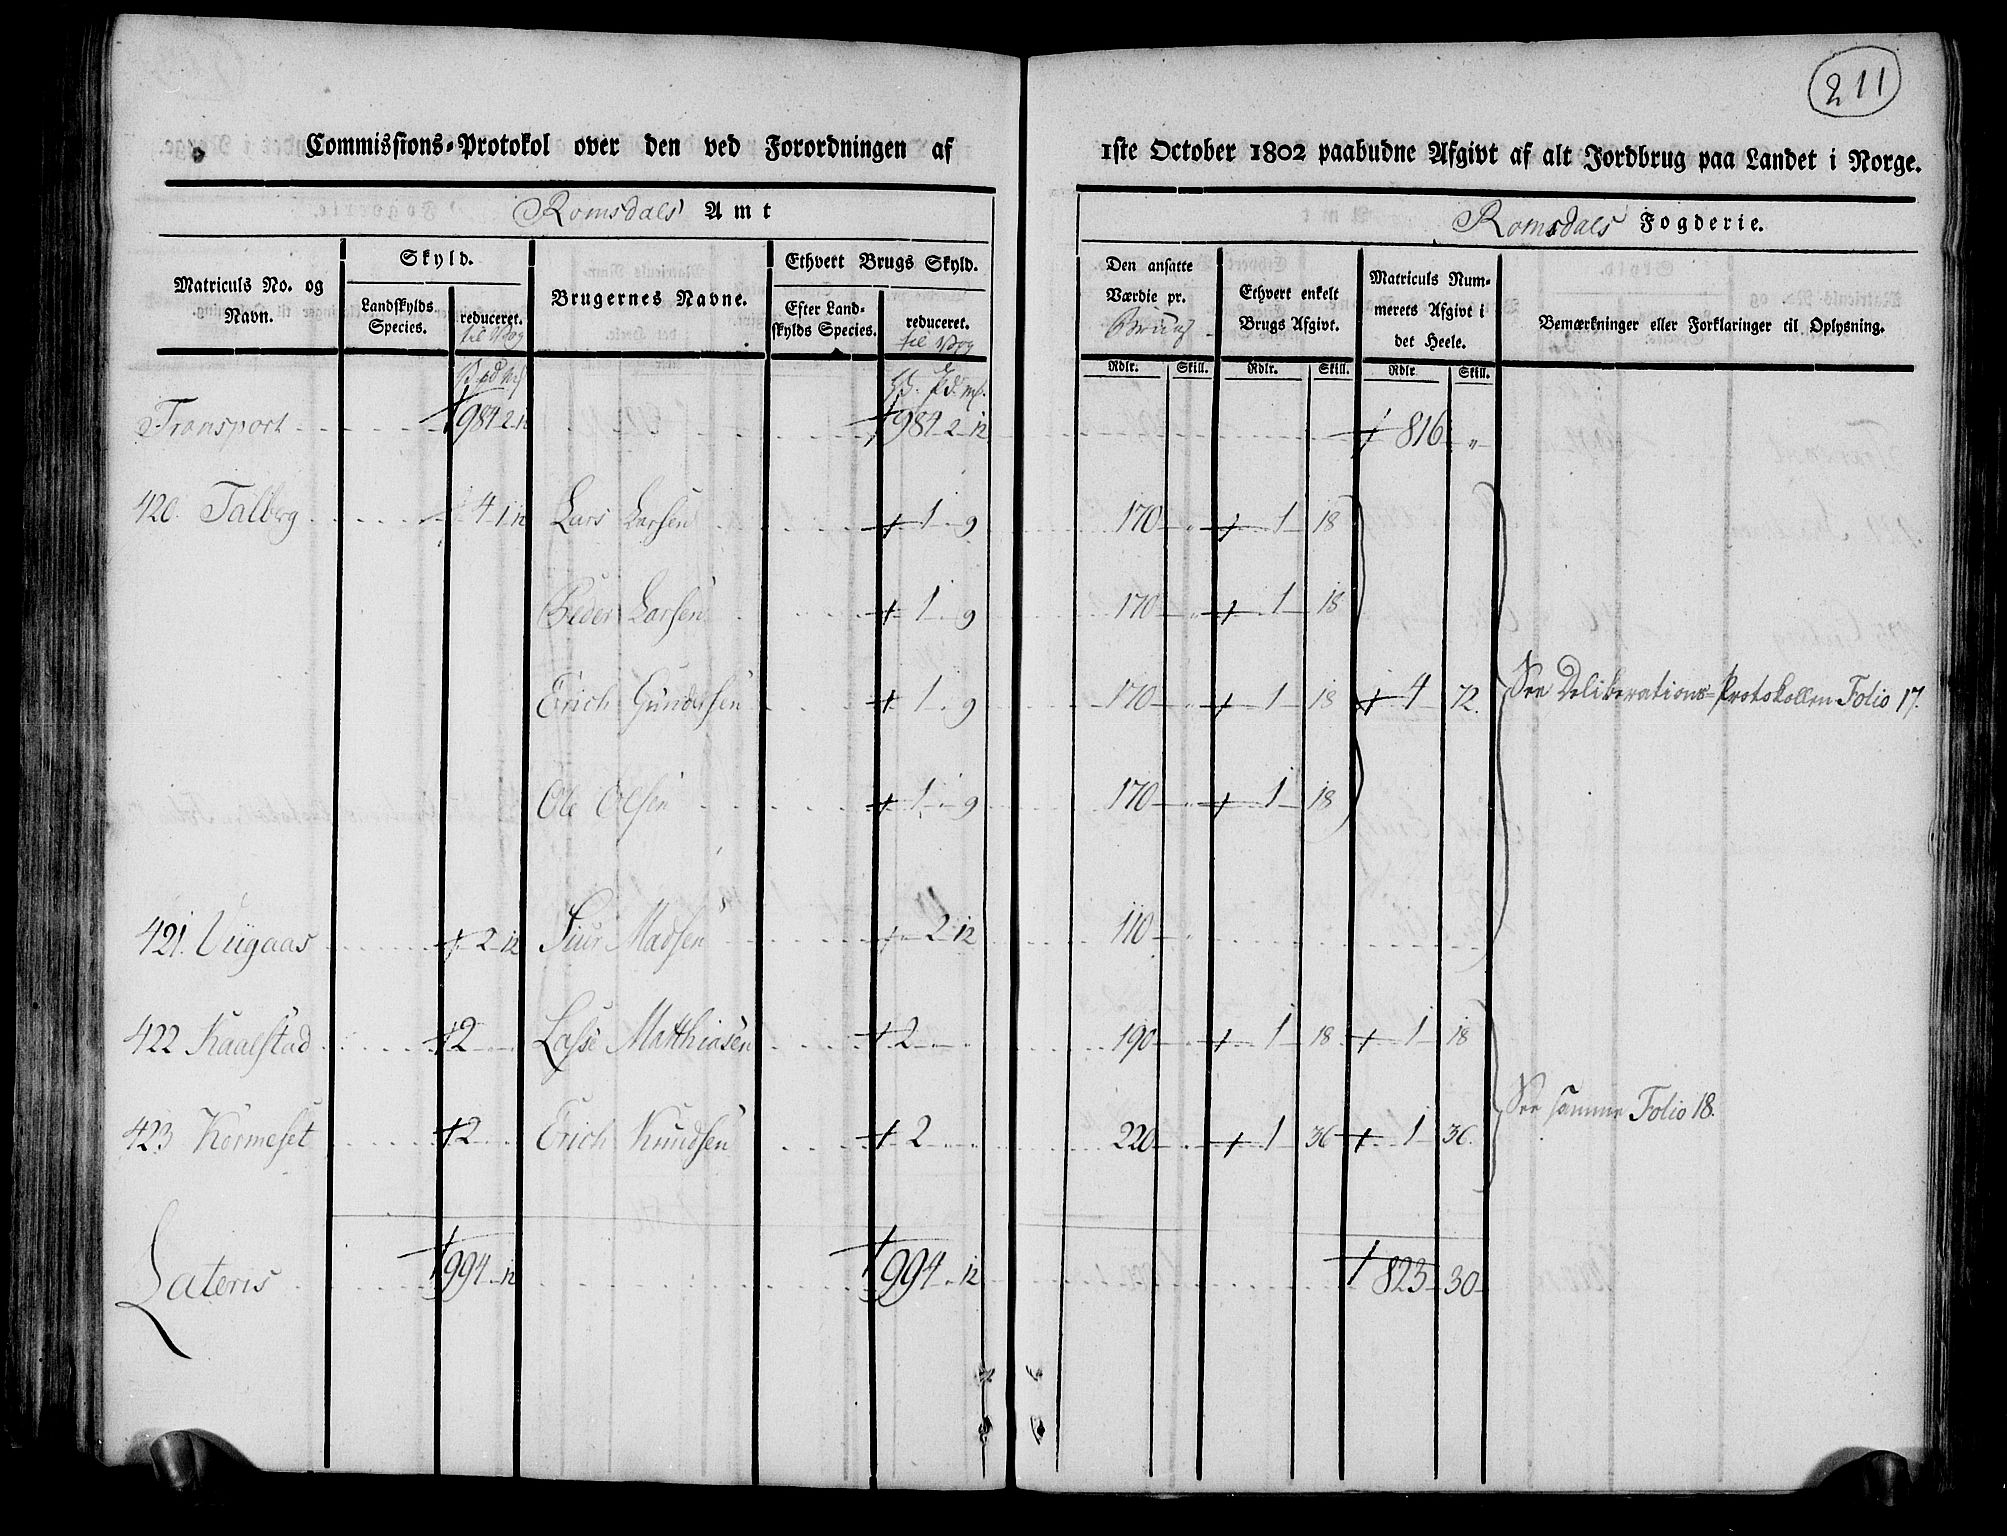 211
Commissions-Protokol over den ved Forordningen af 1ste October 1802 paabudne Afgivt af alt Jordbrug paa Landet i Norge.
Romsdals Amt Romsdals Fogderie.
Matriculs No. og Navn.
Skyld.
Landskylds Species.
reduceret. til Vog
Brugernes Navne.
Ethvert Brugs Skyld.
Efter Landskylds Species.
reduceret. til Vog
Den ansatte Værdie pr. Brug
Ethvert enkelt Brugs Afgivt.
Matriculs Nummerets Afgivt i det Heele.
Bemærkninger eller Forklaringer til Oplysning.
Rdlr. Skill. Rdlr. Skill. Rdlr. Skill.
V. pd. mk. V. pd. mk.
Transport 984 2 12 984 2 12 816 „
420. Talberg 4 1 12 Lars Larsen 1 „ 9 170 „ 1 18
Peder Larsen 1 „ 9 170 „ 1 18
Erich Gundersen 1 „ 9 170 „ 1 18 4 72. See Deliberations-Protokollen Folio 17.
Ole Olsen 1 „ 9 170 „ 1 18
421. Viigaas 2 12 Siur Madsen 2 12 110 „
422 Kaalstad 2 Lasse Matthiasen 2 190 1 18 1 18
423 Kormeset 2 Erich Knudsen 2 220 1 36 1 36. See samme Folio 18.
Lateris 994 „ 12 994 „ 12 823 30